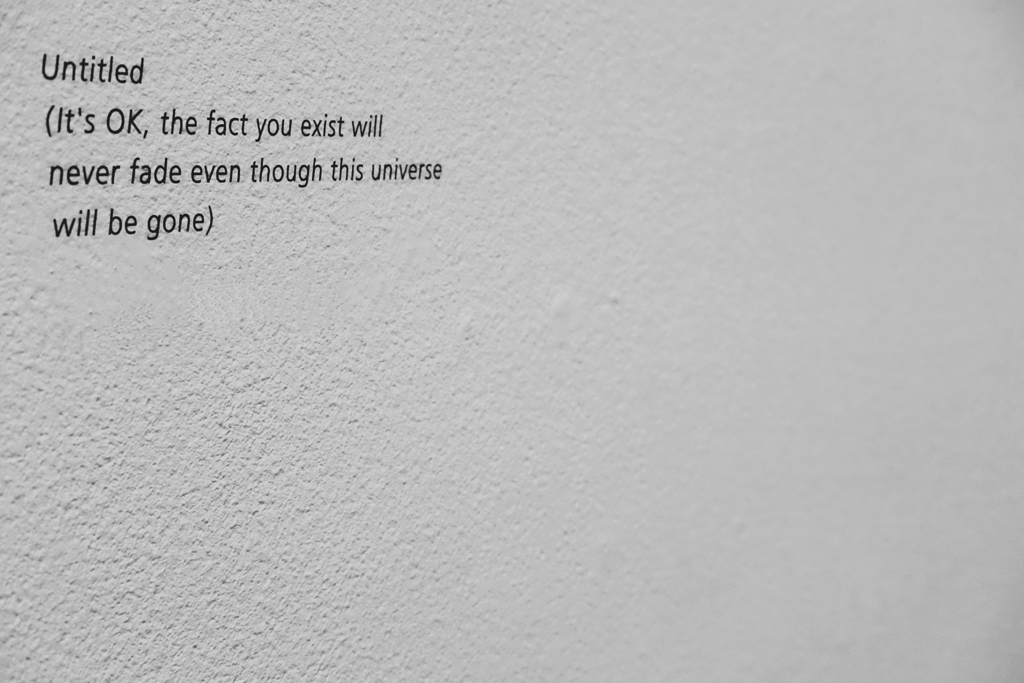 Untitled
(It's OK, the fact you exist will
never fade even though this universe
will be gone)